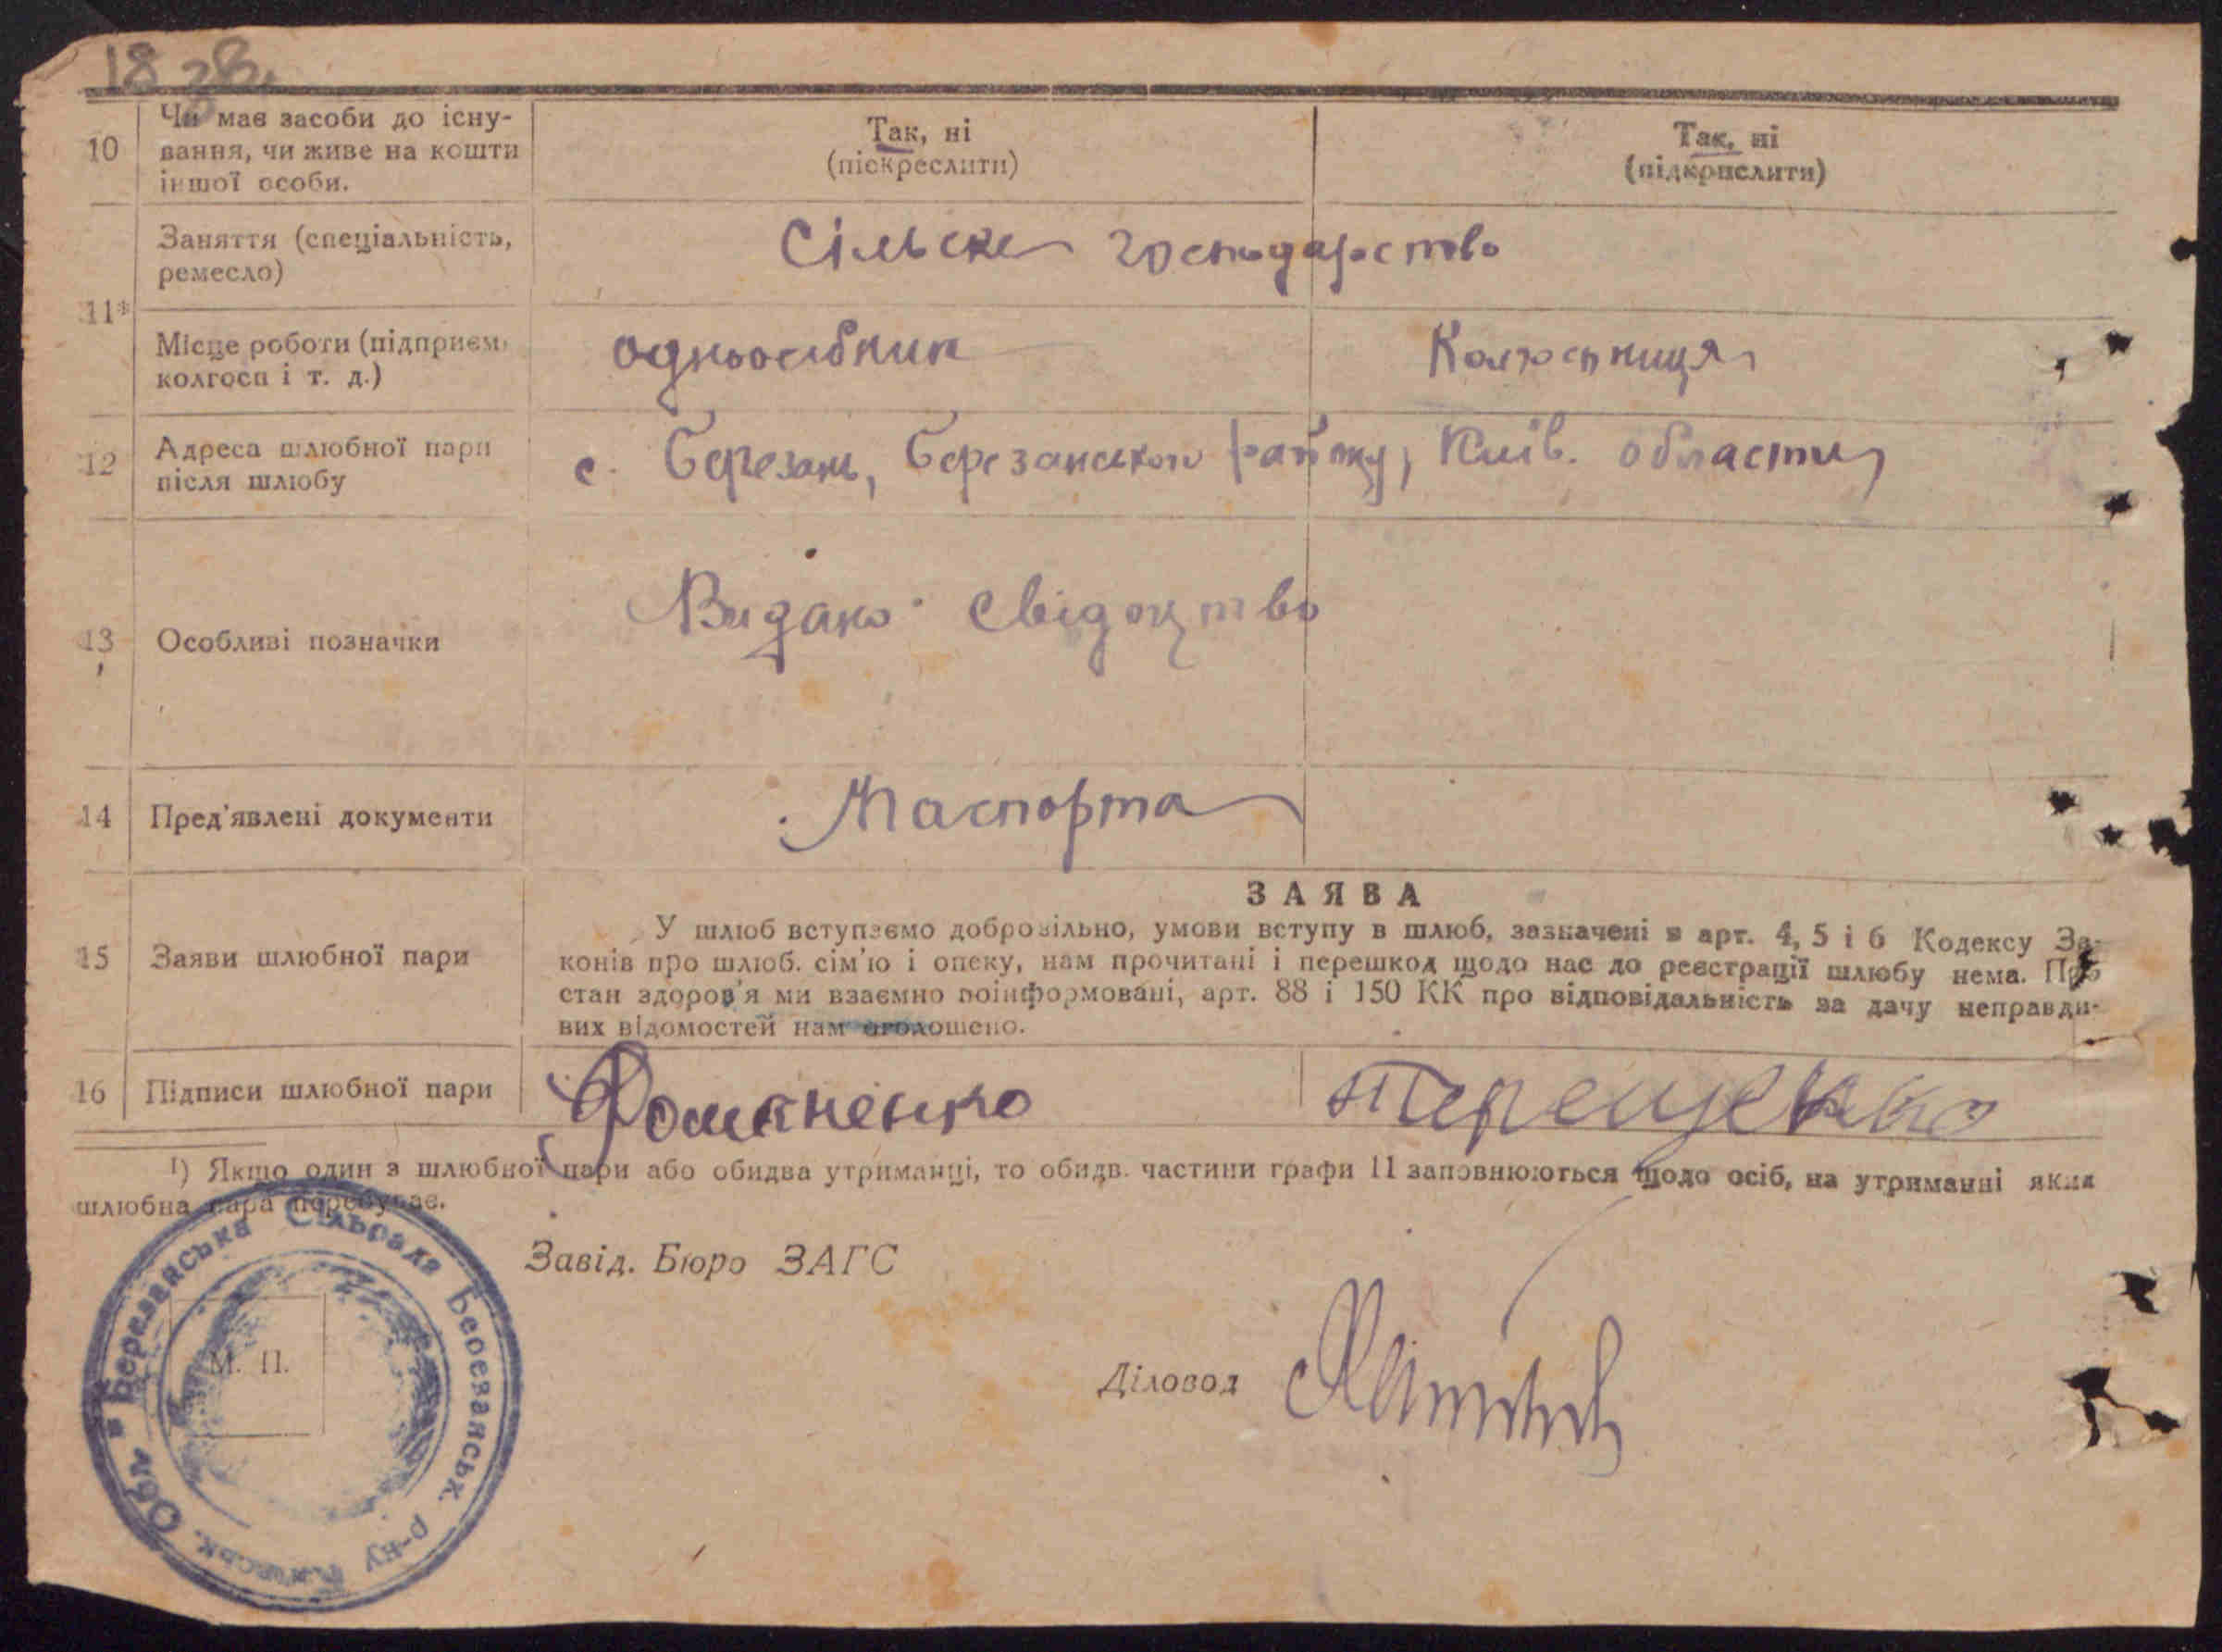 18 38.
10 Чи має засоби до існу-
вання, чи живе на кошти
іншої особи.
Так, ні
(піскреслити)
Так, ні
(підкрислити)
11*
Заняття (спеціальність,
ремесло)
Сільске господарство
Місце роботи (підприєм.
колгосп і т. д.)
одноосібник
Колгоспниця
12 Адреса шлюбної пари
після шлюбу
с. Березань, Березанського району, Київ. области
13 Особливі позначки
Видано свідоцтво
14 Пред'явлені документи
Паспорта
15 Заяви шлюбної пари
ЗАЯВА
У шлюб вступаємо добровільно, умови вступу в шлюб, зазначені в арт. 4, 5 і 6 Кодексу За-
конів про шлюб. сім'ю і опеку, нам прочитані і перешкод щодо нас до реєстрації шлюбу нема. Про
стан здоров'я ми взаємно поінформовані, арт. 88 і 150 КК про відповідальність за дачу неправди-
вих відомостей нам оголошено.
16 Підписи шлюбної пари
Романенко
Терещенко
1) Якщо один з шлюбної пари або обидва утриманці, то обидв. частини графи 11 заповнюються щодо осіб, на утриманні яких
шлюбна пара перебуває.
Завід. Бюро ЗАГС
Діловод
М. П.
Березанська Сільрада Березанськ. р-ну Київськ. Обл